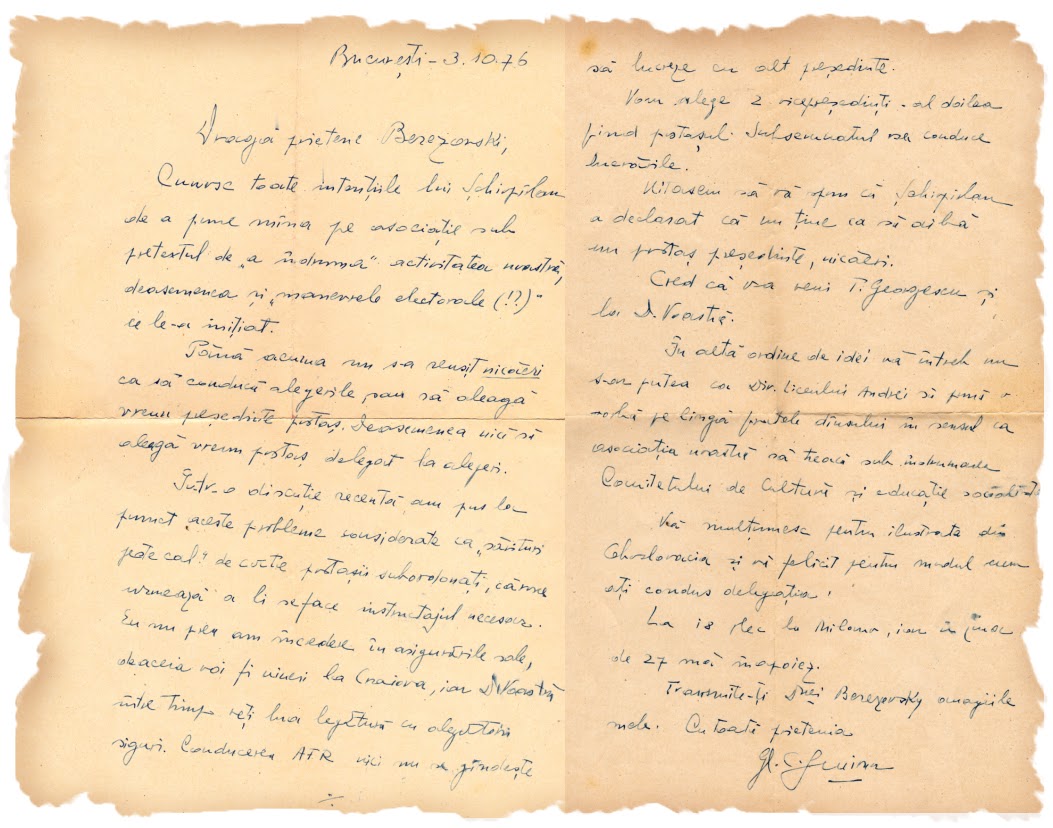 București - 3.10.76
Dragă prietene Berezovski,
Cunosc toate intențiile lui Șchiopîlan
de a pune mîna pe asociație sub
pretextul de „a îndruma" activitatea noastră,
deasemenea și „manevrele electorale (!?)"
ce le-a inițiat.
Până acuma nu s-a reușit nicăeri
ca să conducă alegerile, sau să aleagă
vreun peșdinte poștaș. Deasemenea nici să
aleagă vreun poștaș delegat la alegeri.
Într-o discuție recentă am pus la
punct aceste probleme considerate ca „sărituri
peste cal" de către poștașii subordonați, cărora
urmează a li se face instructajul necesar.
Eu nu prea am încedere în asigurările sale,
deaceia voi fi vineri la Craiova, iar D. Voastră
între timp veți lua legătură cu alegătorii
siguri. Conducerea AFR nici nu se gîndește
./.
să lucreze cu alt peședinte.
Vom alege 2 vicepreședinți - al doilea
fiind poștașul. Subsemnatul va conduce
lucrările.
Uitasem să vă spun că Șchiopîlan
a declarat că nu ține ca să aibă
un poștaș peședinte, nicăeri.
Cred că va veni T. Georgescu și
la D. Voastră.
În altă ordine de idei vă întreb nu
s-ar putea ca Dir. Liceului Andrei să pună o
vorbă pe lîngă fratele dînsului în sensul ca
asociația noastră să treacă sub îndrumarea
Comitetului de Cultură și educație socialistă
Vă mulțumesc pentru ilustrata din
Cehoslovacia și vă felicit pentru modul cum
ați condus delegația.
La 18 plec la Milano, iar în
de 27 mă înapoiez.
Transmite-ți Dnei Berezovsky omagiile
mele. Cu toată pietenia